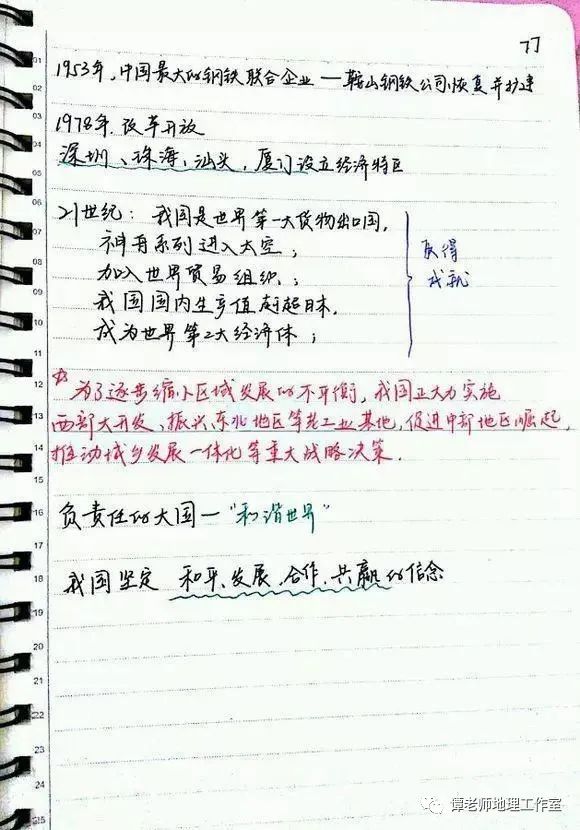 77
1953年，中国最大的钢铁联合企业——鞍山钢铁公司恢复并扩建
1978年.改革开放
深圳、珠海、汕头，厦门设立经济特区
21世纪：我国是世界第一大货物出口国，
神舟系列进入太空；
加入世界贸易组织；
我国国内生产值赶超日本，
成为世界第2大经济体；
获得
成就
为了逐步缩小区域发展的不平衡，我国正大力实施
西部大开发、振兴东北地区等老工业基地，促进中部地区崛起，
推动城乡发展一体化等重大战略决策.
负责任的大国—“和谐世界”
我国坚定 和平、发展、合作、共赢的信念
01
02
03
04
05
06
07
08
09
10
11
12
13
14
15
16
17
18
19
20
21
22
23
24
25
谭老师地理工作室